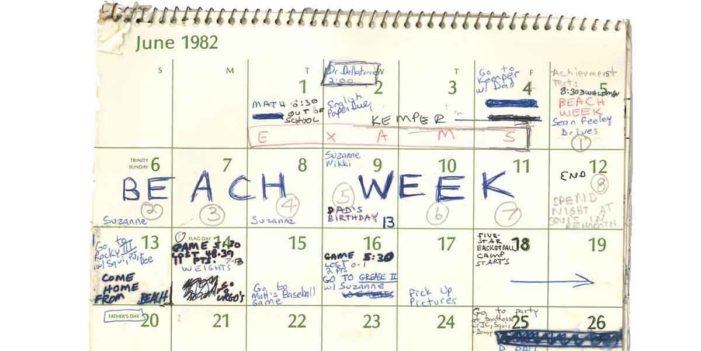 June 1982
S M T W T F S
1 2 3 4 5
MATH 8:30
OUT OF
SCHOOL
2:00
English
Paper Due
KEMPER
Go to
Kemper
w/ Dad
Achievement
Tests
8:30
BEACH
WEEK
Sean Feeley
Drives
1
EXAMS
TRINITY
SUNDAY
6 7 8 9 10 11 12
BEACH WEEK
Suzanne
2
3
Suzanne
4
Suzanne
Nikki
5
DAD'S
BIRTHDAY
13
6
7
END
8
SPEND
NIGHT AT
13 14 15 16 17 18 19
Go to
Rocky III
COME
HOME
FROM BEACH
FLAG DAY
GAME 5:30
LOST 48-39
11 PTS.
WEIGHTS
Go to
Matt's Baseball
Game
GAME 5:30
LOST
2 Pts
GO TO GREASE II
w/ Suzanne
Pick Up
Pictures
FIVE-
STAR
BASKETBALL
CAMP
STARTS
FATHER'S DAY
20 21 22 23 24 25 26
Go to party